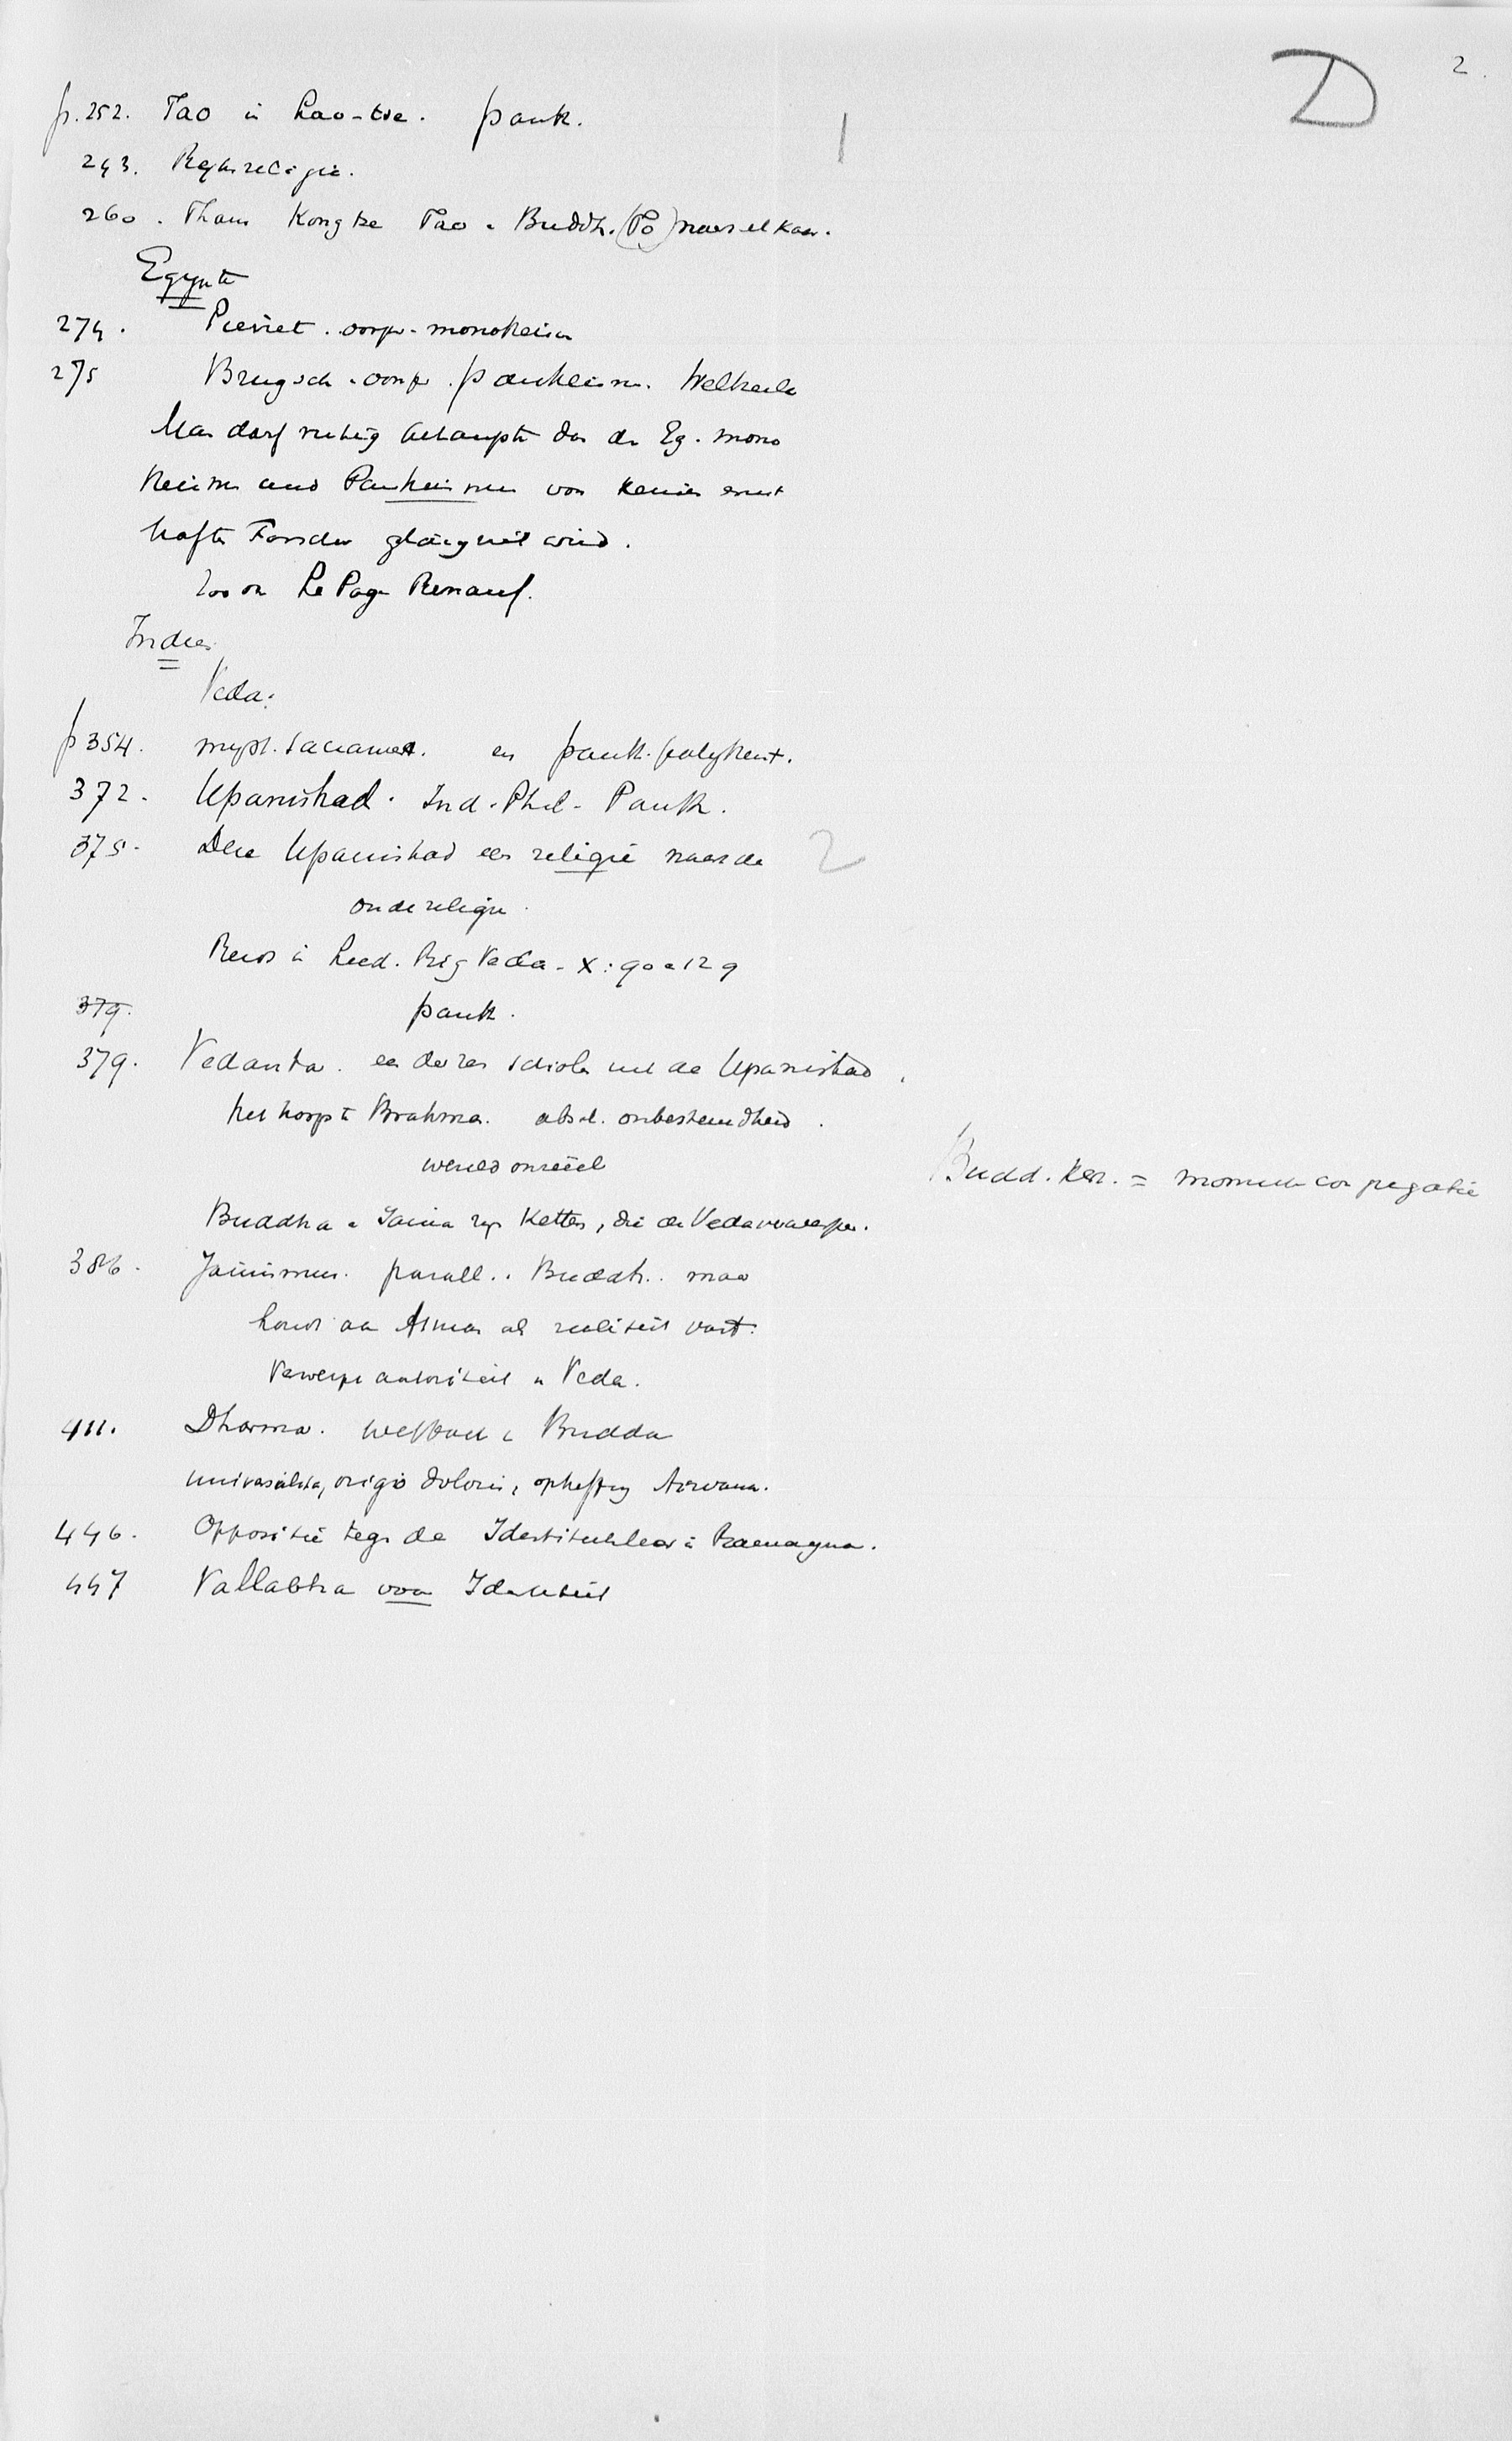 D 2.
p. 252. Tao in Lao-tse. panth.
1
243. Rijksreligie.
260. Thans Kong tse Tao en Buddh. (Fo) naast elkaar.
Egypte
274. Pierret. oorspr. monotheism
275 Brugsch. oorspr. pantheism.
Man darf ruhig behaupten das der Eg. mono
theism und Pantheismus von keinem ernst
haften Forscher geläugnet wird.
Zoo ook Le Page Renouf.
Indien
Veda:
p 354. myst. sacrament. en panth. polytheist.
372. Upanishad. Ind. Phil. Panth.
375. Deze Upanishad een religie naast de
2
oude religie.
Reeds in Lied. Rig Veda. X: 90 en 129
379. panth.
379. Vedanta. een derer scholen uit de Upanishad.
het hoogste Brahma. absol. onbestemdheid.
wereld onreëel
Budd. kerk. = monniken congregatie
Buddha en Jaina zijn Ketters, die de Veda verwerpen.
386. Jainismus. parall. Buddh. maar
houdt aan Atman als realiteit vast.
Verwerpt autoriteit v Veda.
411. Dharma. Buddha
universalitas, origo doloris, opheffing Nirvana.
446. Oppositie tegen de Identiteitsleer in Ramanyua.
447 Vallabha voor Identiteit